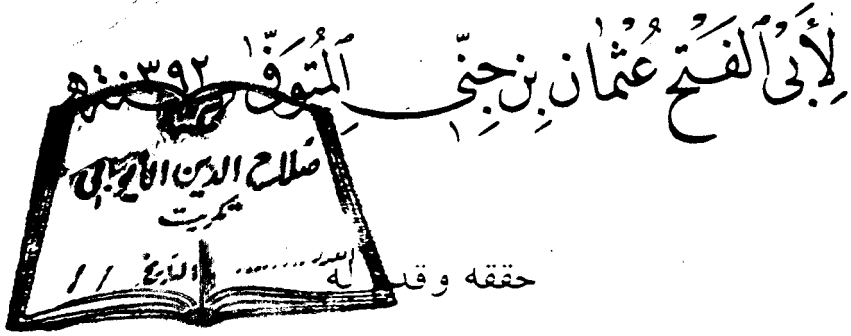 لِأَبِي ٱلْفَتْحِ عُثْمَان بِن جِنّي ٱلْمُتَوَفّٰى ٣٩٢هـ
صلاح الدين الأيوبي
تكريت
العدد .......... التاريخ / /
حققه وقدم له